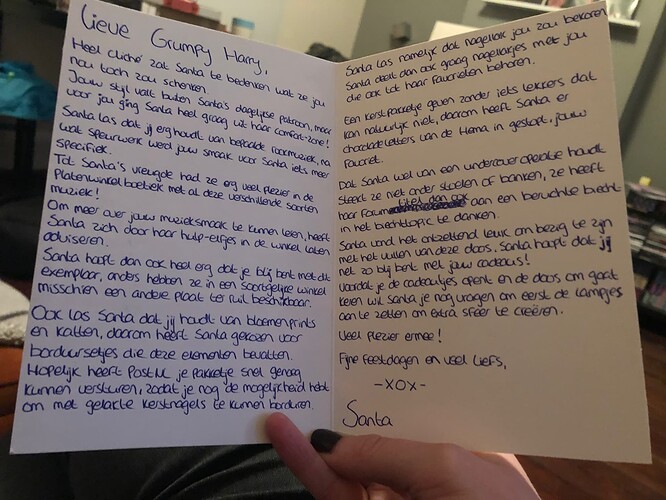 Lieve Grumpy Harry,
Heel cliché zat Santa te bedenken wat ze jou
nou toch zou schenken.
Jouw stijl valt buiten Santa's dagelijkse patroon, maar
voor jou ging Santa heel graag uit haar comfort-zone!
Santa las dat jij erg houdt van bepaalde rockmuziek, na
wat speurwerk werd jouw smaak voor Santa iets meer
specifiek.
Tot Santa's vreugde had ze erg veel plezier in de
Platenwinkel boetiek met al deze verschillende soorten
muziek!
Om meer over jouw muzieksmaak te kunnen leren, heeft
Santa zich door haar hulp-elfjes in de winkel laten
adviseren.
Santa hoopt dan ook heel erg dat je blij bent met dit
exemplaar, anders hebben ze in een soortgelijke winkel
misschien een andere plaat ter ruil beschikbaar.
Ook las Santa dat jij houdt van bloemenprints
en katten, daarom heeft Santa gekozen voor
borduursetjes die deze elementen bevatten.
Hopelijk heeft PostNL je pakketje snel genoeg
kunnen versturen, zodat je nog de mogelijkheid hebt
om met gelakte kerstnagels te kunnen borduren.
Santa las namelijk dat nagellak jou zou bekoren
Santa deelt dan ook graag nagellakjes met jou
die ook tot haar favorieten behoren.
Een kerstpakketje geven zonder iets lekkers dat
kan natuurlijk niet, daarom heeft Santa er
chocoladeletters van de Hema in gestopt, jouw
favoriet.
Dat Santa wel van een undercover operatie houdt
steekt ze niet onder stoelen of banken, ze heeft
haar Forum titel dan ook aan een beruchte
in het topic te danken.
Santa vond het ontzettend leuk om bezig te zijn
met het vullen van deze doos. Santa hoopt dat jij
net zo blij bent met jouw cadeaus!
Voordat je de cadeautjes opent en de doos om gaat
keren wil Santa je nog vragen om eerst de lampjes
aan te zetten om extra sfeer te creëren.
Veel plezier ermee!
Fijne feestdagen en veel liefs,
-XOX-
Santa